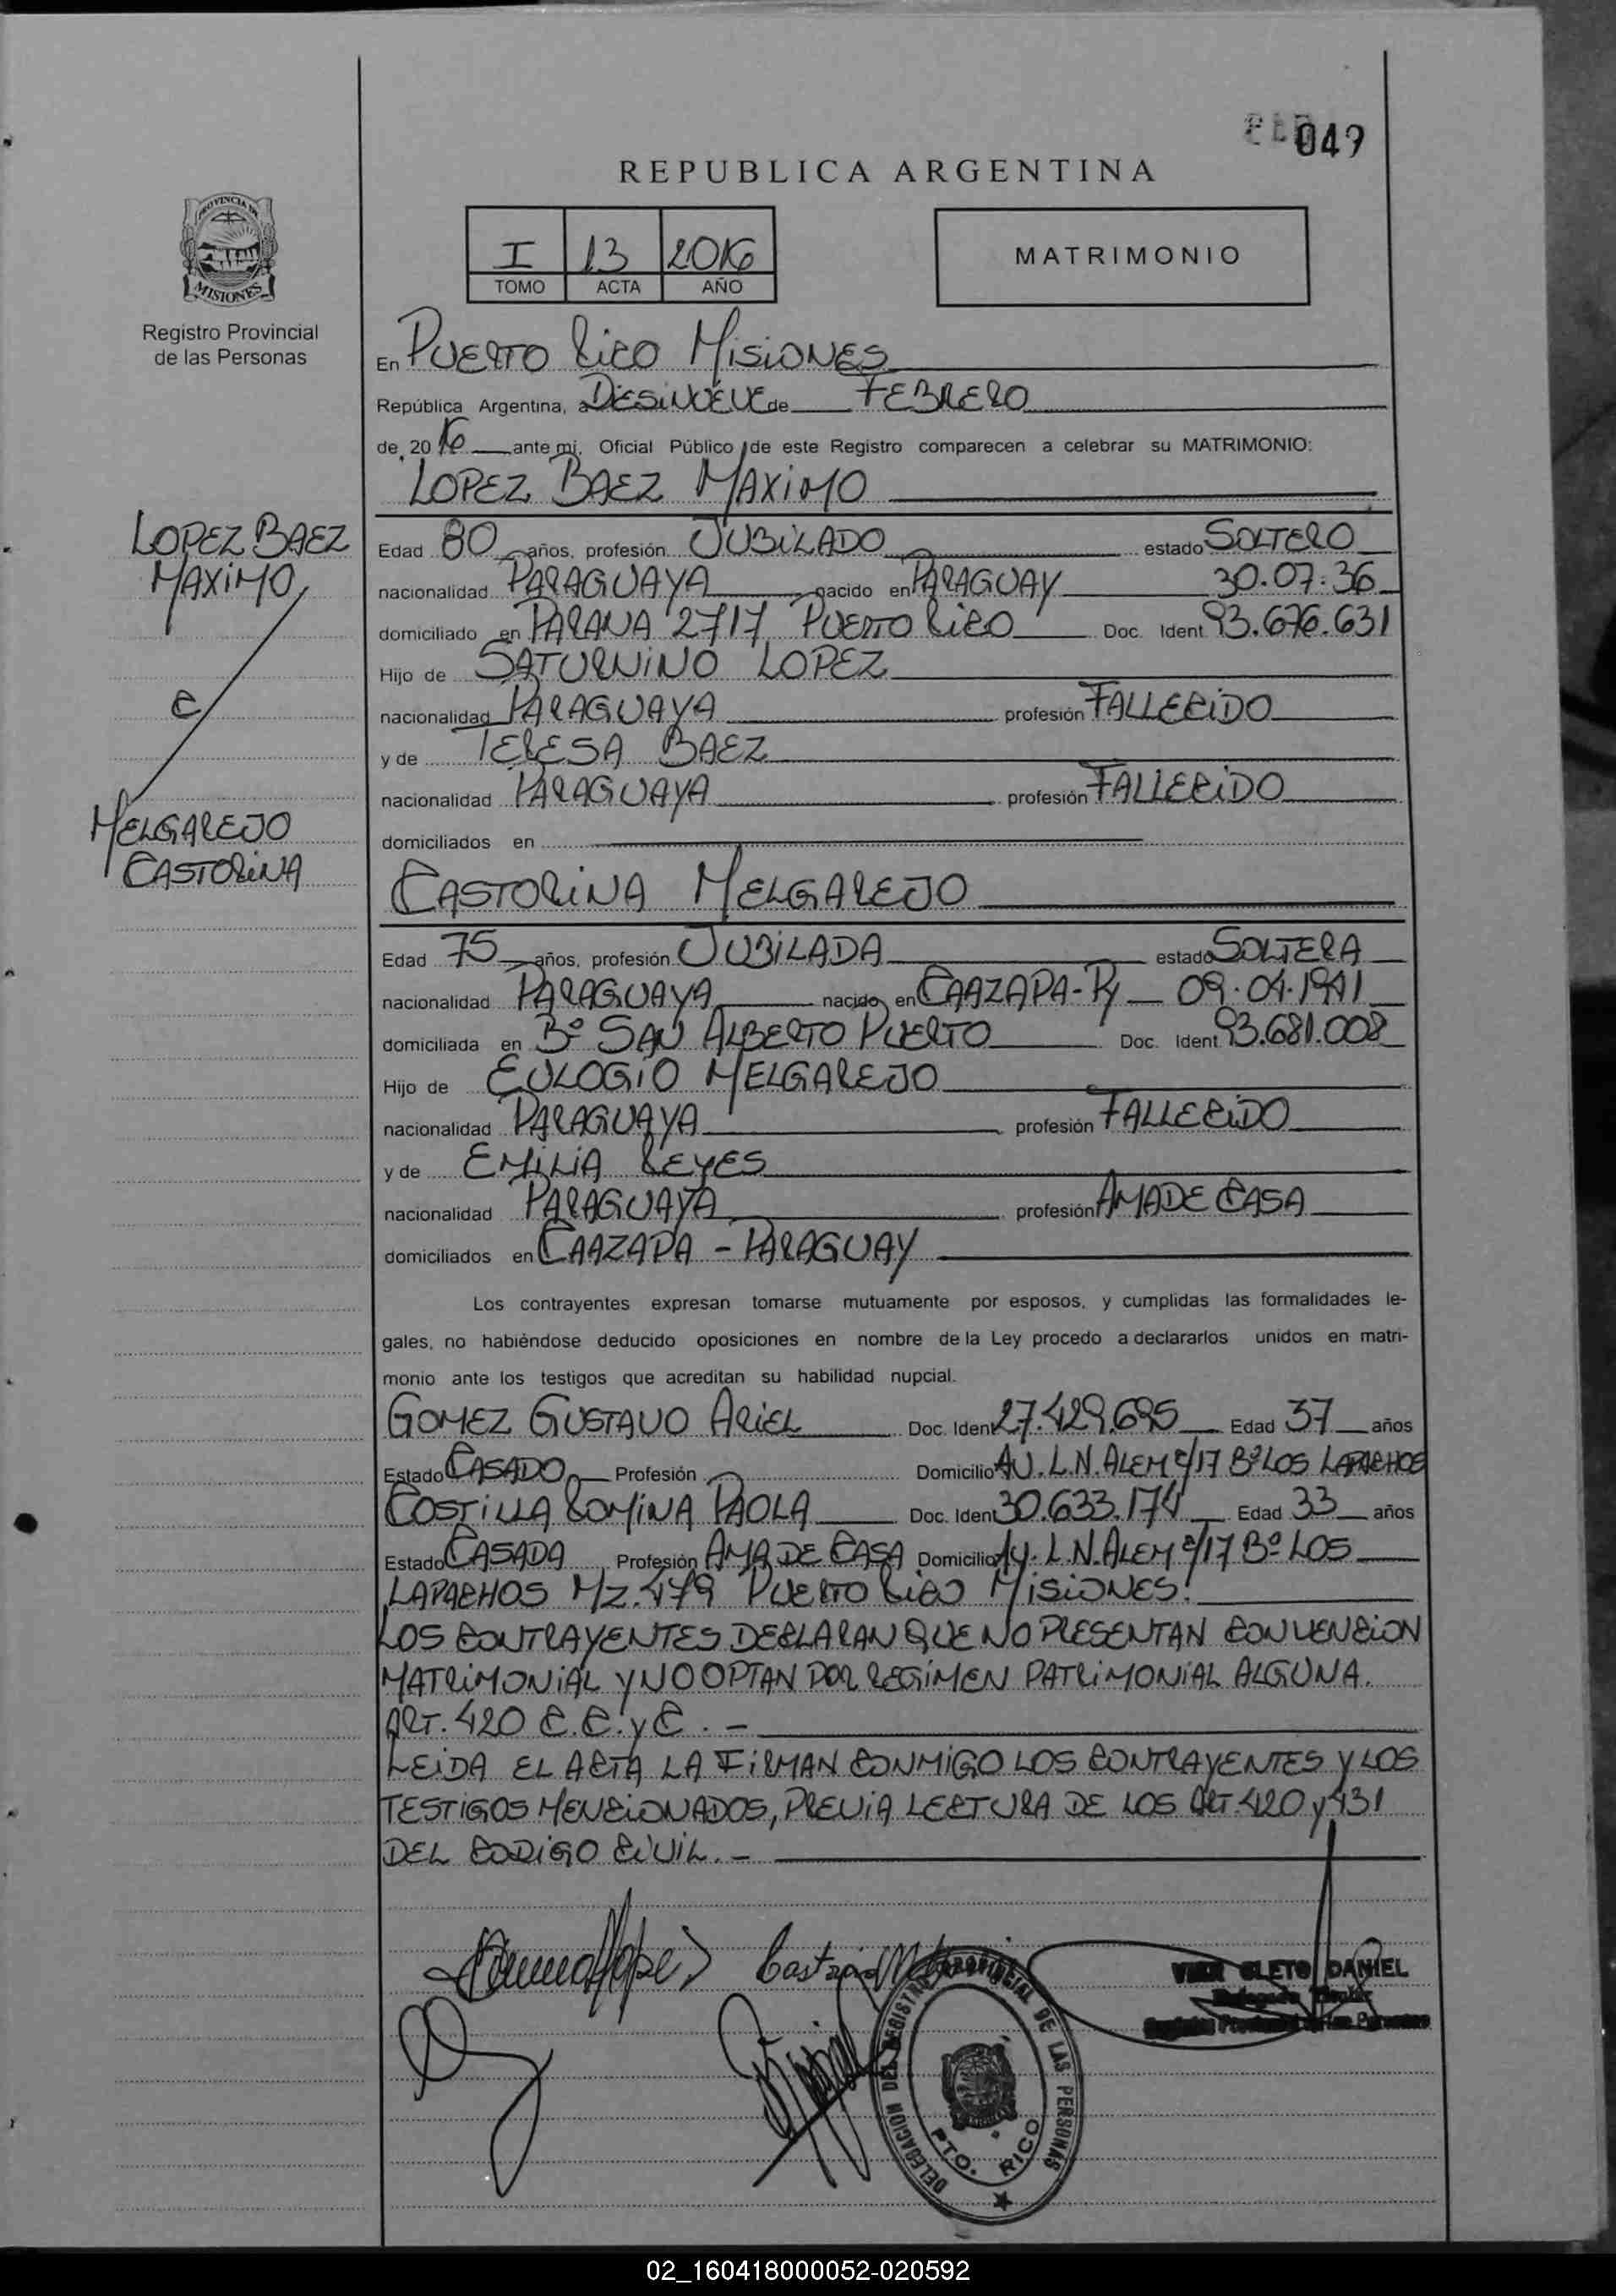 049
REPUBLICA ARGENTINA
PROVINCIA DE
MISIONES
Registro Provincial
de las Personas
I 13 2016
TOMO ACTA AÑO
MATRIMONIO
En PUERTO RICO MISIONES
República Argentina, a DIESINUEVE de FEBRERO
de 20 16 ante mi, Oficial Público de este Registro comparecen a celebrar su MATRIMONIO:
LOPEZ BAEZ MAXIMO
LOPEZ BAEZ
MAXIMO
C
MELGAREJO
CASTORINA
Edad 80 años, profesión JUBILADO estado SOLTERO
nacionalidad PARAGUAYA nacido en PARAGUAY 30.07.36
domiciliado en PARANA 2717 PUERTO RICO Doc. Ident 93.676.631
Hijo de SATURNINO LOPEZ
nacionalidad PARAGUAYA profesión FALLECIDO
y de TERESA BAEZ
nacionalidad PARAGUAYA profesión FALLECIDO
domiciliados en
CASTORINA MELGAREJO
Edad 75 años, profesión JUBILADA estado SOLTERA
nacionalidad PARAGUAYA nacido en CAAZAPA-PY 09.04.1941
domiciliada en Bº SAN ALBERTO PUERTO Doc. Ident 93.681.008
Hijo de EULOGIO MELGAREJO
nacionalidad PARAGUAYA profesión FALLECIDO
y de EMILIA REYES
nacionalidad PARAGUAYA profesión AMA DE CASA
domiciliados en CAAZAPA - PARAGUAY
Los contrayentes expresan tomarse mutuamente por esposos, y cumplidas las formalidades le-
gales, no habiéndose deducido oposiciones en nombre de la Ley procedo a declararlos unidos en matri-
monio ante los testigos que acreditan su habilidad nupcial.
GOMEZ GUSTAVO ARIEL Doc. Ident 27.429.695 Edad 37 años
Estado CASADO Profesión Domicilio AV. L.N. ALEM c/17 Bº LOS LAPACHOS
COSTILLA ROMINA PAOLA Doc. Ident 30.633.174 Edad 33 años
Estado CASADA Profesión AMA DE CASA Domicilio AV. L.N. ALEM c/17 Bº LOS
LAPACHOS MZ. 479 PUERTO RICO MISIONES.
LOS CONTRAYENTES DECLARAN QUE NO PRESENTAN CONVENCION
MATRIMONIAL Y NO OPTAN POR REGIMEN PATRIMONIAL ALGUNA.
ART. 420 C.C. y C. -
LEIDA EL ACTA LA FIRMAN CONMIGO LOS CONTRAYENTES Y LOS
TESTIGOS MENCIONADOS, PREVIA LECTURA DE LOS ART. 420 y 431
DEL CODIGO CIVIL. -
CLETO DANIEL
DELEGACION DEL REGISTRO PROVINCIAL DE LAS PERSONAS
PTO. RICO
02_160418000052-020592